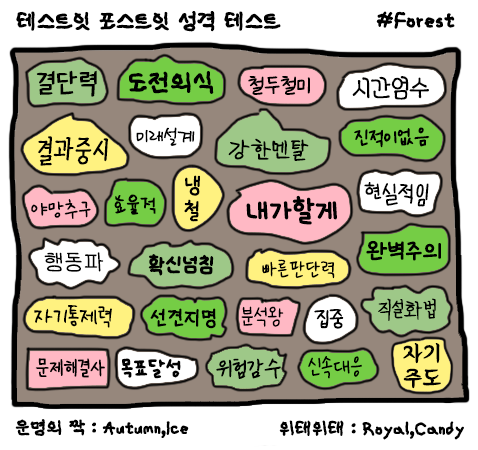 테스트잇 포스트잇 성격 테스트 #Forest
결단력 도전의식 철두철미 시간엄수
결과중시 미래설계 강한멘탈 진적이없음
야망추구 효율적 냉철 내가할게 현실적임
행동파 확신넘침 빠른판단력 완벽주의
자기통제력 선견지명 분석왕 집중 직설화법
문제해결사 목표달성 위험감수 신속대응 자기주도
운명의 짝 : Autumn,Ice 위태위태 : Royal,Candy